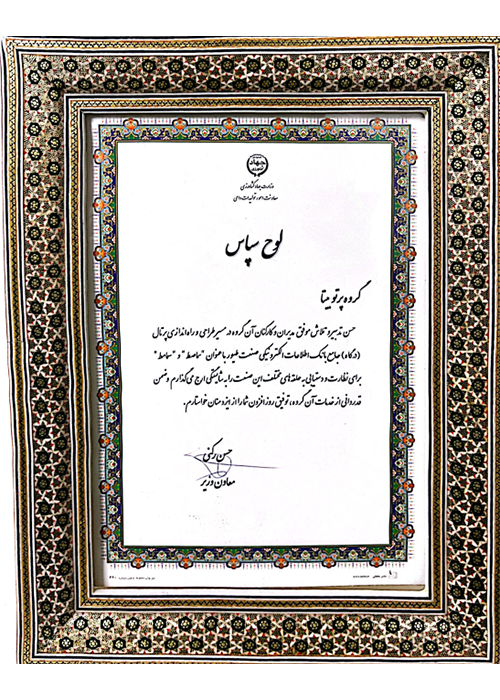 جهاد
وزارت جهاد کشاورزی
معاونت امور تولیدات دامی
لوح سپاس
گروه پرتو بیتا
حسن تدبیر و تلاش موفق مدیران و کارکنان آن گروه در مسیر طراحی و راه اندازی پرتال
(درگاه) جامع بانک اطلاعات الکترونیکی صنعت طیور با عنوان "سامسط" و "سماصط"
برای نظارت و دستیابی به حلقه های مختلف این صنعت را به شایستگی ارج می گذارم و ضمن
قدردانی از خدمات آن گروه، توفیق روز افزون شما را از ایزد منان خواستارم.
حسن رکنی
معاون وزیر